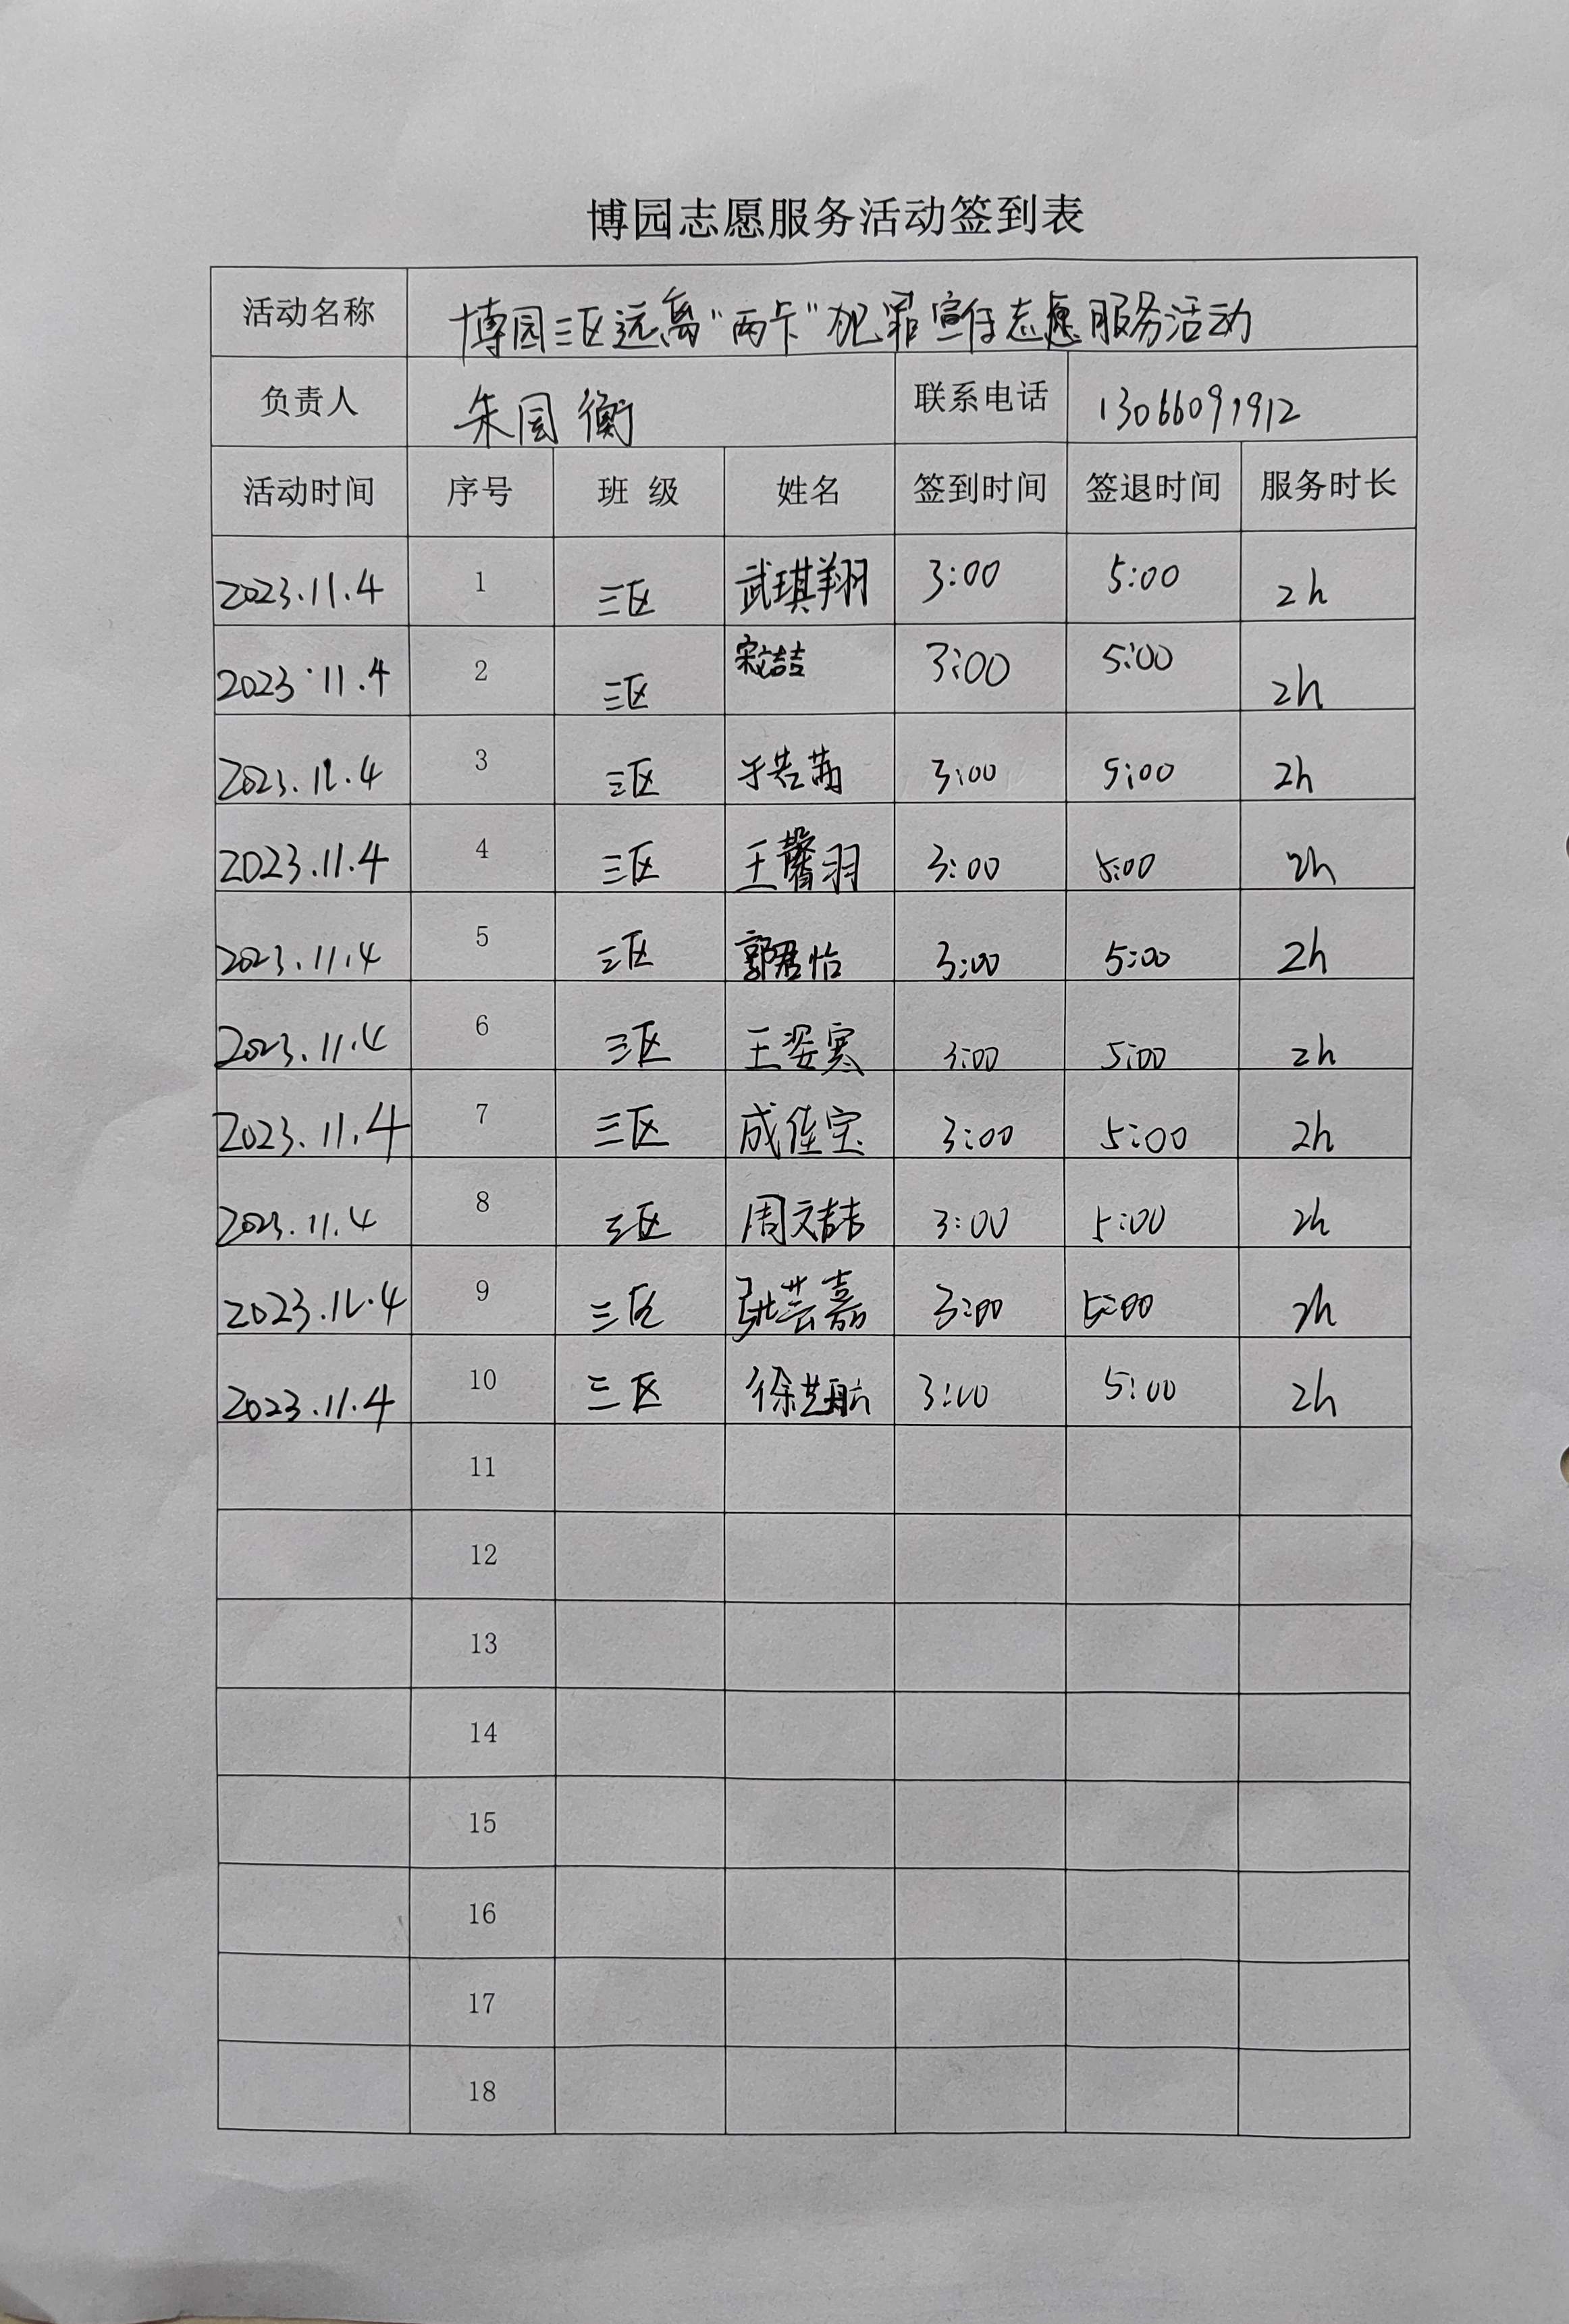 博园志愿服务活动签到表
活动名称 博园三区远离“两卡”犯罪宣传志愿服务活动
负责人 朱国衡 联系电话 13066091912
活动时间 序号 班 级 姓名 签到时间 签退时间 服务时长
2023.11.4 1 三区 武琪翔 3:00 5:00 2h
2023.11.4 2 三区 宋喆 3:00 5:00 2h
2023.11.4 3 三区 3:00 5:00 2h
2023.11.4 4 三区 王馨羽 3:00 5:00 2h
2023.11.4 5 三区 郭君怡 3:00 5:00 2h
2023.11.4 6 三区 王姿寒 3:00 5:00 2h
2023.11.4 7 三区 成佳宝 3:00 5:00 2h
2023.11.4 8 三区 周文喆 3:00 5:00 2h
2023.11.4 9 三区 张芸嘉 3:00 5:00 2h
2023.11.4 10 三区 徐艺航 3:00 5:00 2h
11
12
13
14
15
16
17
18